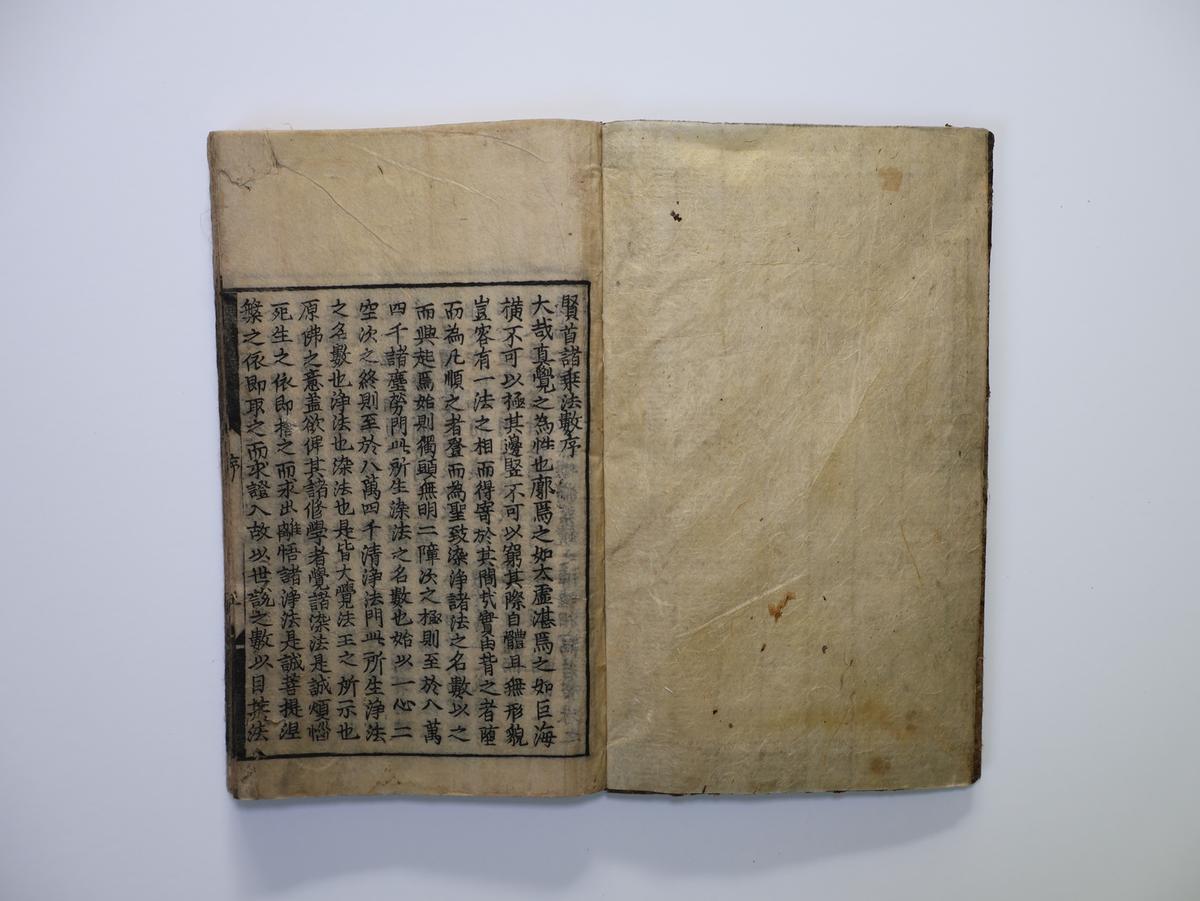 賢首諸乗法數序
大哉真覺之為性也廓焉之如太虛湛焉之如巨海
横不可以極其邊竪不可以窮其際自體且無形貌
豈容有一法之相而得寄於其間㦲實由昔之者堕
而為凡順之者登而為聖致染淨諸法之名數以之
而興起焉始則獨頭無明二障次之極則至於八萬
四千諸塵勞門此所生染法之名數也始以一心二
空次之終則至於八萬四千清淨法門此所生淨法
之名數也淨法也染法也是皆大覺法王之所示也
原佛之意盖欲俾其諸修學者覺諸染法是誠煩惱
死生之依即捨之而求出離悟諸淨法是誠菩提涅
槃之依即取之而求證入故以世說之數以目其法
序